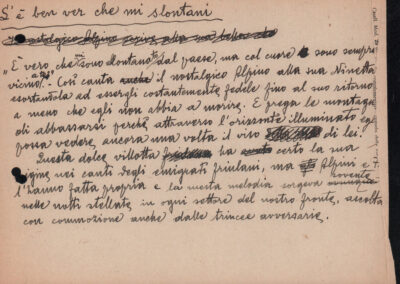 S'è ben ver che mi slontani
"È vero, che mi sono slontanato dal paese, ma col cuore sono sempre
vicino a te". Così canta il nostalgico Alpino alla sua Ninetta
esortandola ad essergli costantemente fedele fino al suo ritorno
a meno che egli non abbia a morire. E prega le montagne
di abbassarsi perchè attraverso l'orizzonte illuminato egli
possa vedere ancora una volta il viso di lei!
Questa dolce villotta ha certo la sua
origine nei canti degli emigrati friulani, ma Alpino e
l'hanno fatta propria e la mesta melodia sorgeva sovente
nelle notti stellate in ogni settore del nostro fronte, ascolta
con commozione anche dalle trincee avversarie.